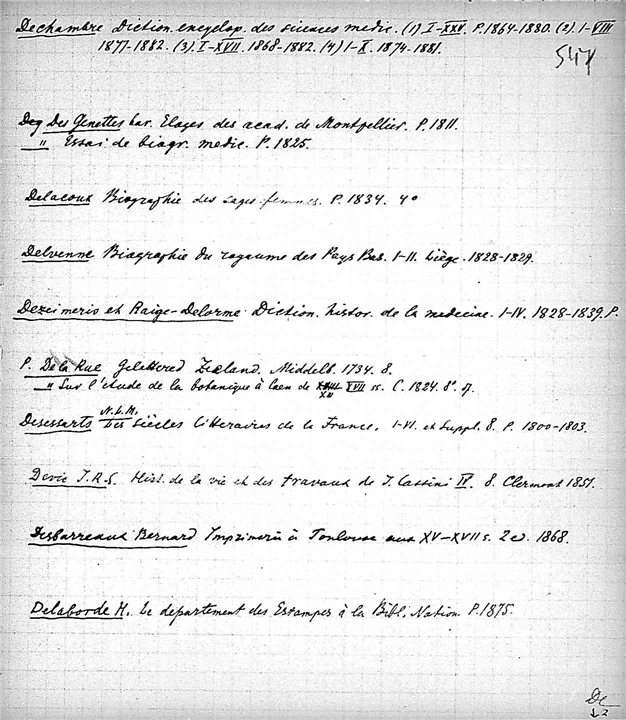 Dechambre Diction. encyclop. des sciences medic. (1) I-XXV. P. 1864-1880. (2). I-VIII
1877-1882. (3). I-XVII. 1868-1882. (4) I-X. 1874-1881.
Deg Des Genettes bar. Eloges des acad. de Montpellier. P. 1811.
" Essai de biogr. medic. P. 1825.
Delacoux Biographie des sages-femmes. P. 1834. 4°
Delvenne Biographie du royaume des Pays Bas. I-II. Liège. 1828-1829.
Dezeimeris et Raige-Delorme Diction. histor. de la medecine. I-IV. 1828-1839. P.
P. De la Rue Gelettered Zeeland. Middelb. 1734. 8.
" Sur l'etude de la botanique à Caen de XVII s. C. 1824. 8°.
Desessarts N.L.M. Les siècles litteraires de la France. I-VI. et Suppl. 8. P. 1800-1803.
Devic J.A.S. Hist. de la vie et des travaux de J. Cassini IV. 8. Clermont 1851.
Desbarreaux Bernard Imprimerie à Toulouse aux XV-XVII s. 2 ed. 1868.
Delaborde H. Le departement des Estampes à la Bibl. Nation. P. 1875.
De
↓ 2